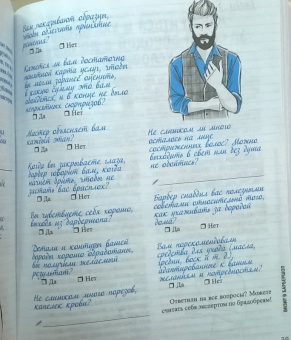 Вам показывают образцы,
чтобы облегчить принятие
решения?
☐ Да ☐ Нет
Кажется ли вам достаточно
понятной карта услуг, чтобы
вы могли заранее оценить,
в какую сумму это вам
обойдется, и в конце не было
неприятных сюрпризов?
☐ Да ☐ Нет
Мастер объясняет вам
каждый этап?
☐ Да ☐ Нет
Когда вы закрываете глаза,
барбер говорит вам, когда
начнет брить, чтобы не
застать вас врасплох?
☐ Да ☐ Нет
Вы чувствуете себя хорошо,
выходя из барбершопа?
☐ Да ☐ Нет
Детали и контуры вашей
бороды хорошо обработаны,
вы получили желаемый
результат?
☐ Да ☐ Нет
Не слишком много порезов,
капелек крови?
Не слишком ли много
осталось на лице
состриженных волос? Можно
выходить в свет или без душа
не обойтись?
Барбер снабдил вас полезными
советами относительно того,
как ухаживать за бородой
дома?
☐ Да ☐ Нет
Вам порекомендовали
средства для ухода (масла,
бренды, воск и т. д.),
адаптированные к вашим
желаниям и потребностям?
☐ Да ☐ Нет
Ответили на все вопросы? Можете
считать себя экспертом по брадобреям!
ВИЗИТ В БАРБЕРШОП